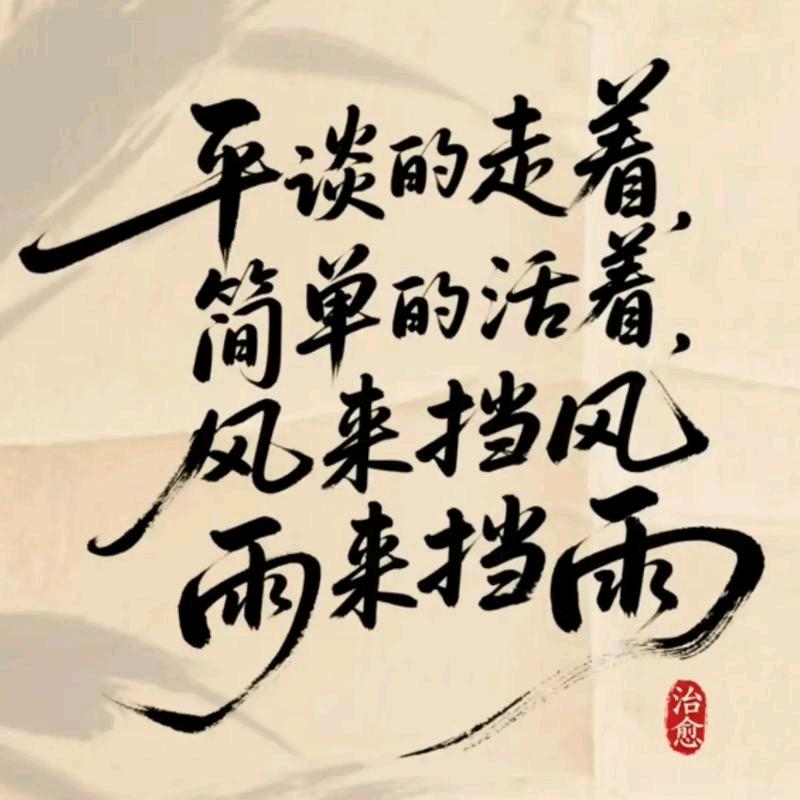 平谈的走着，
简单的活着，
风来挡风
雨来挡雨
治愈